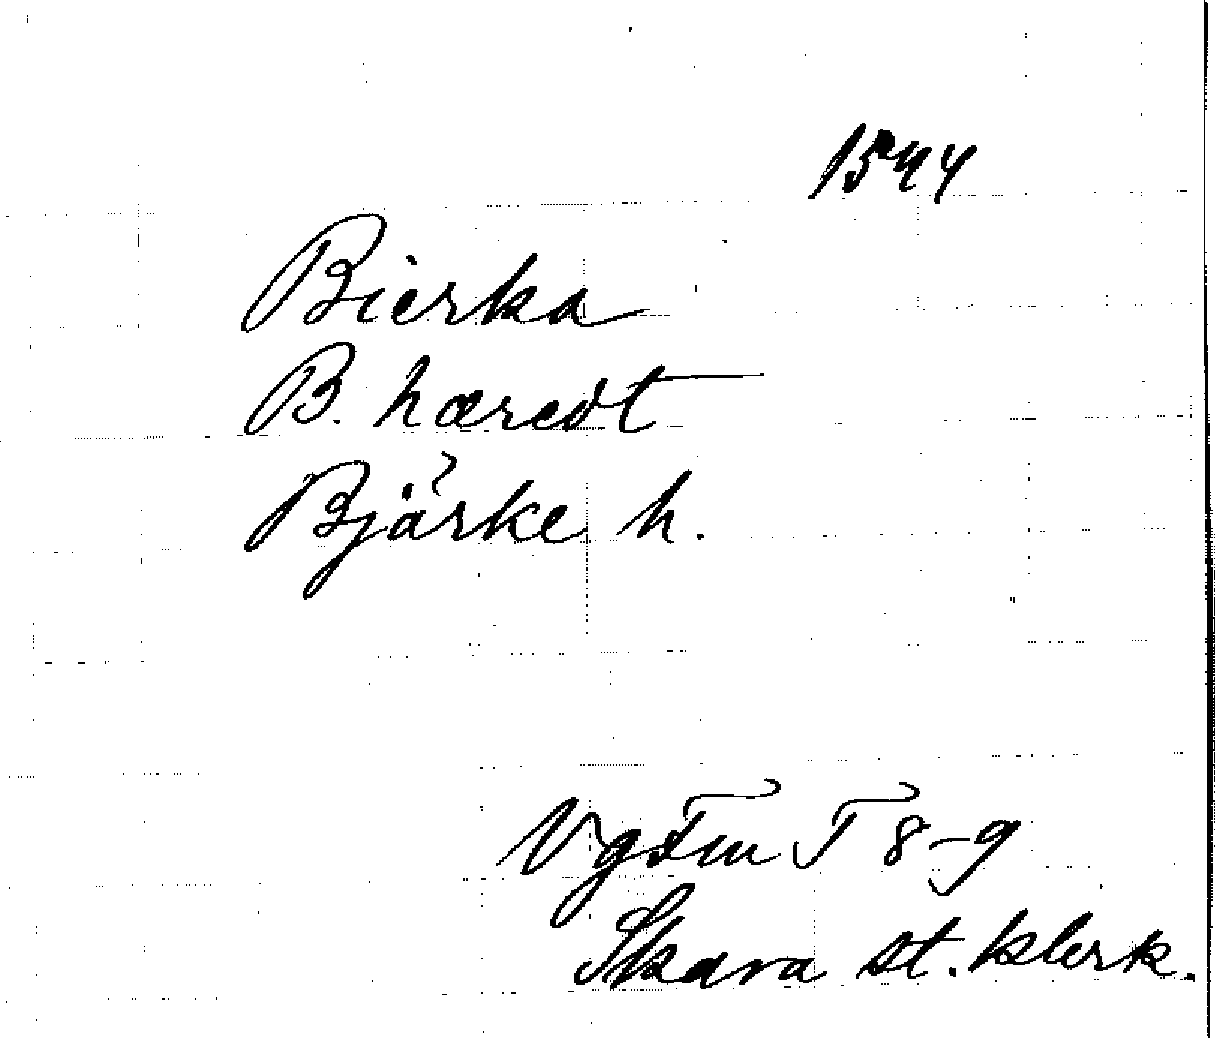 1544
Bierka
B. hæredt
Bjärke h.
VgFm I 8-9
Skara st. klerk.